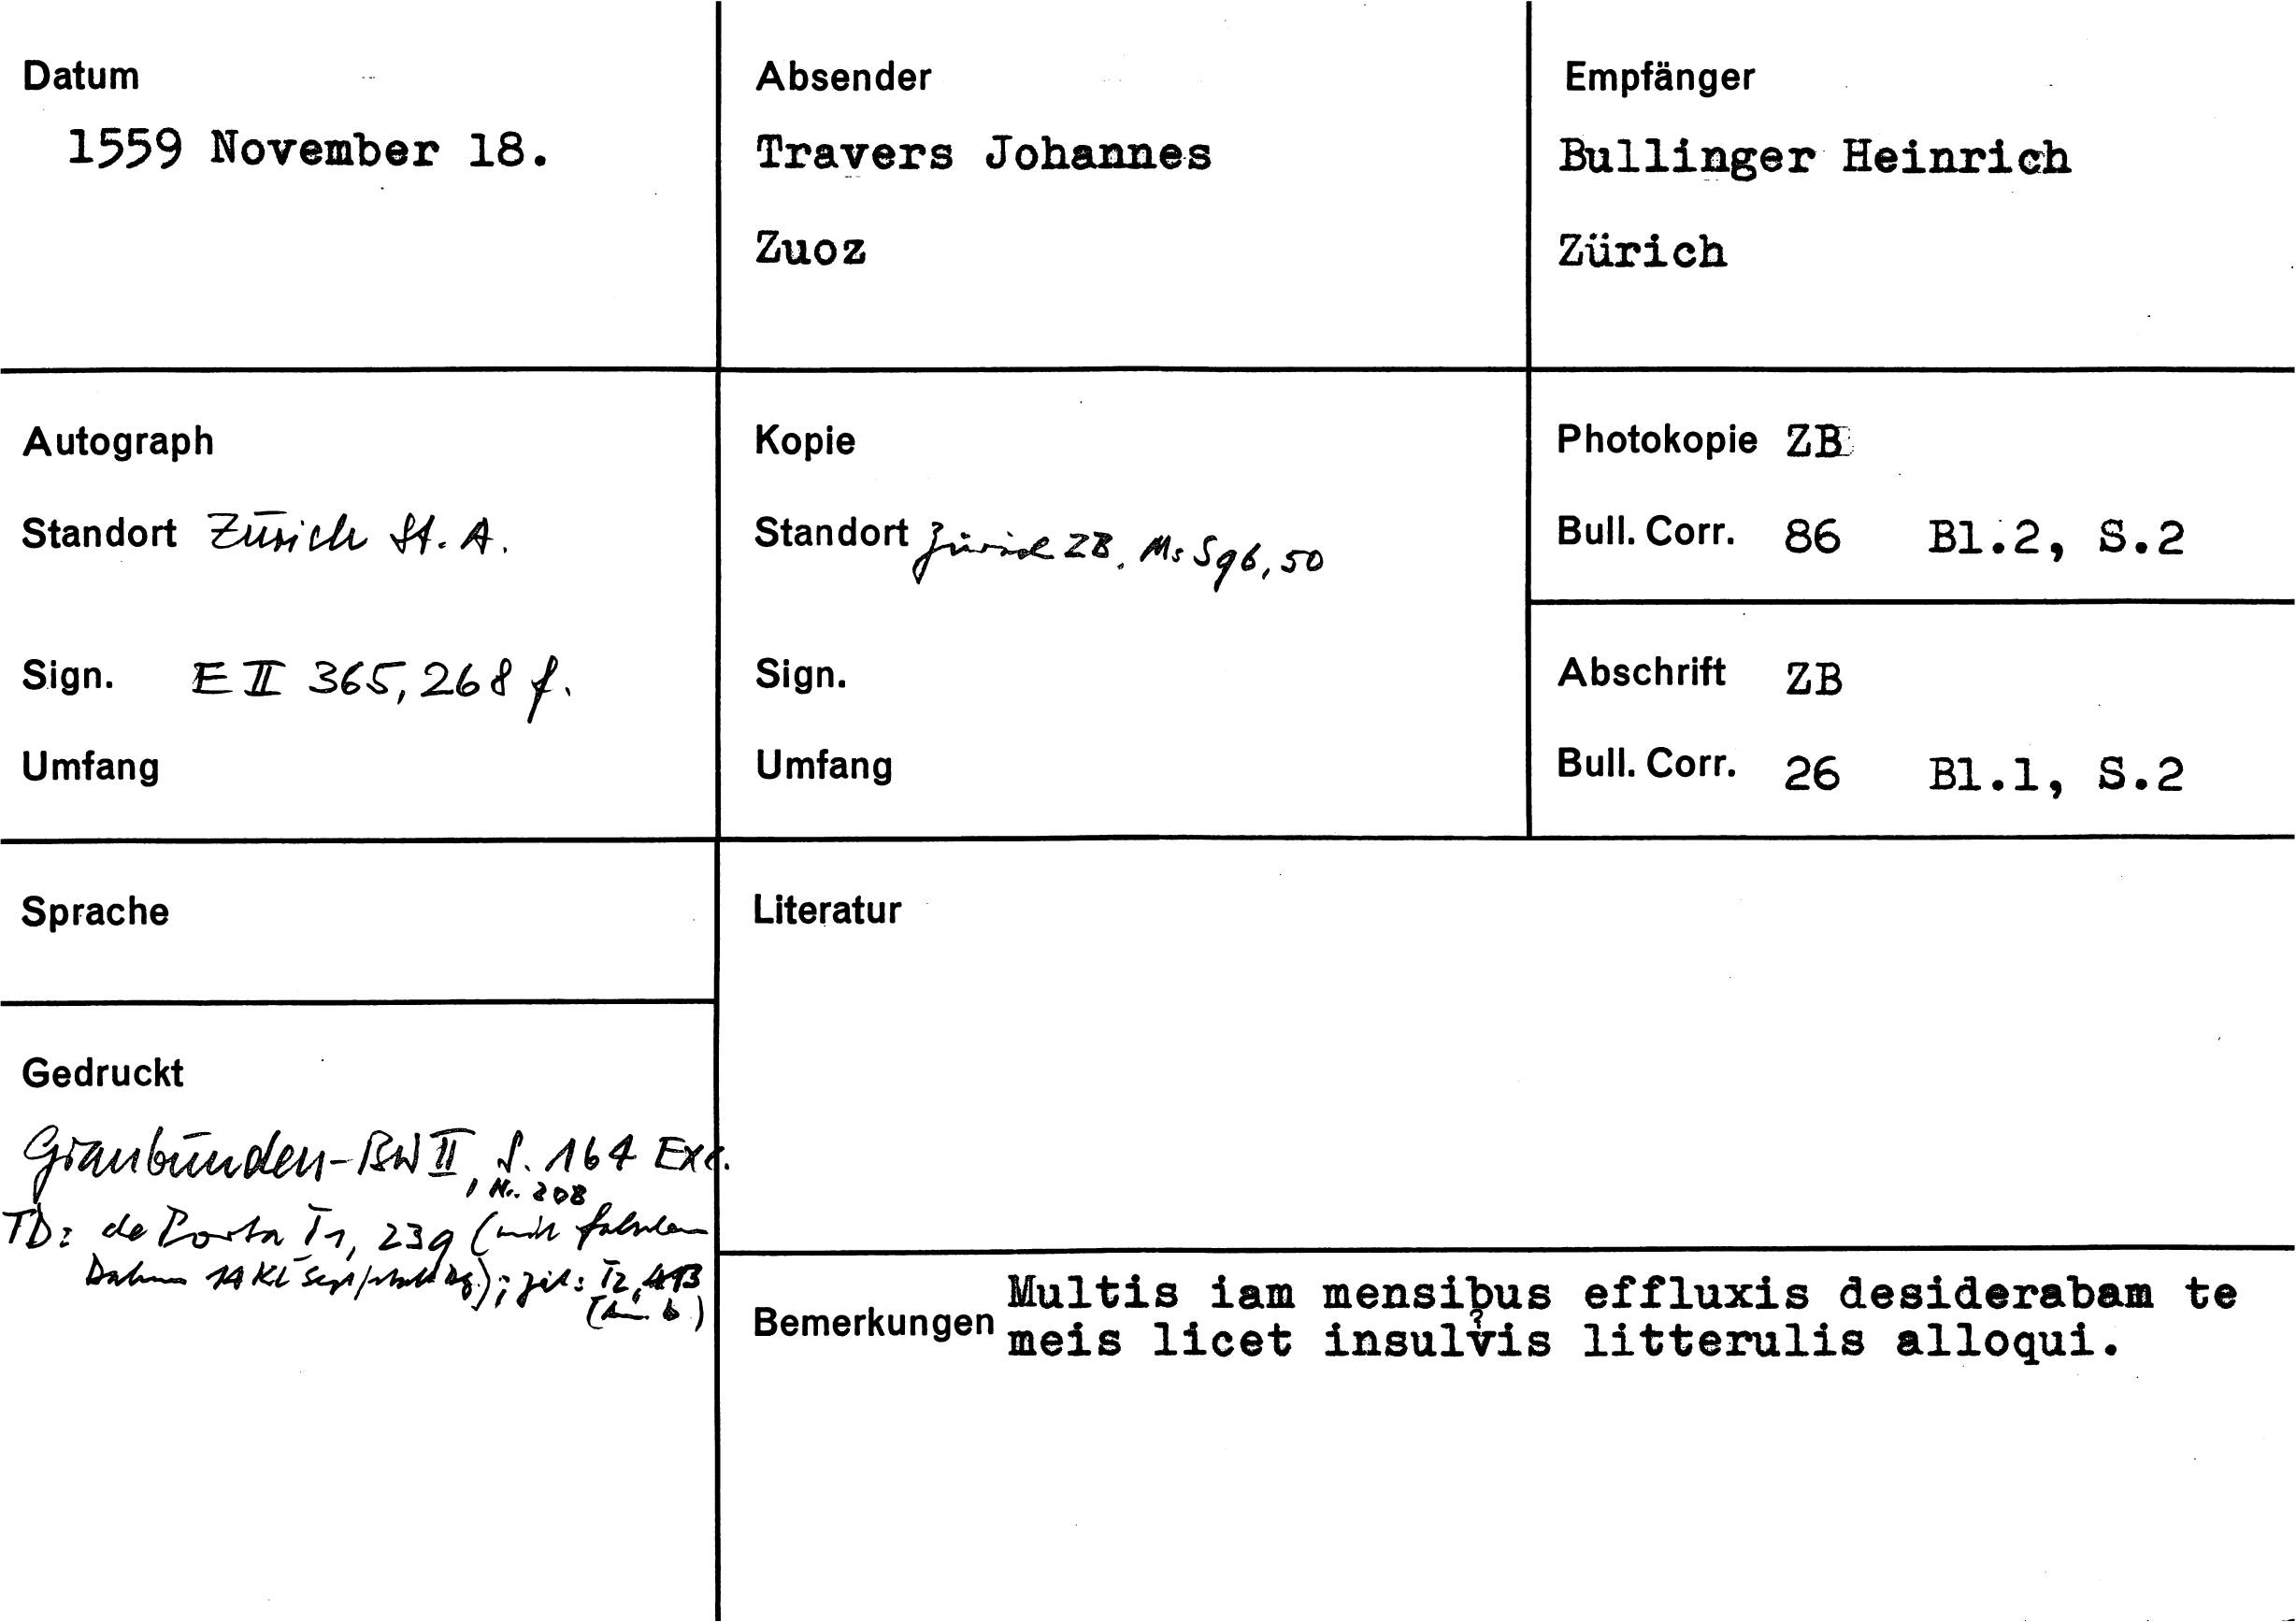 Datum
1559 November 18.
Absender
Travers Johannes
Zuoz
Empfänger
Bullinger Heinrich
Zürich
Autograph
Standort Zürich St. A.
Sign. E II 365, 268 f.
Umfang
Kopie
Standort Zürich ZB, Ms S 96, 50
Sign.
Umfang
Photokopie ZB
Bull. Corr. 86 Bl.2, S.2
Abschrift ZB
Bull. Corr. 26 Bl.1, S.2
Sprache
Gedruckt
Graubünden-BW II, S. 164 Exc.
, Nr. 208
TD: de Porta I1, 239 (mit falschem
Datum 14 Kl Sept ); zit: I2, 413
Literatur
Bemerkungen
Multis iam mensibus effluxis desiderabam te
meis licet insulvis litterulis alloqui.